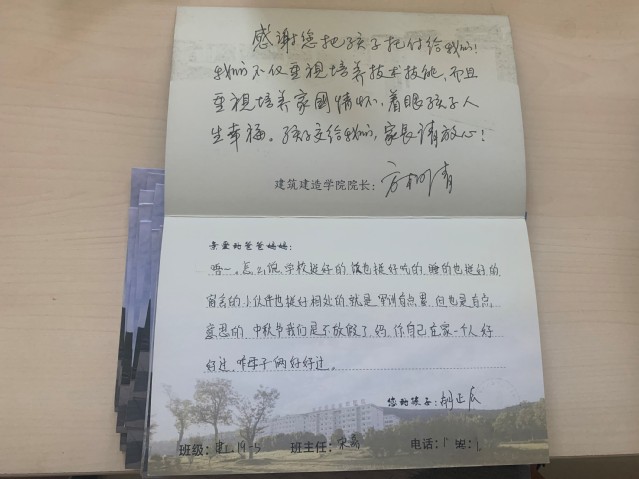 感谢您把孩子托付给我们!
我们不仅重视培养技术技能,而且
重视培养家国情怀,着眼孩子人
生幸福。孩子交给我们,家长请放心!
建筑建造学院院长:
亲爱的爸爸妈妈:
唔~,怎么说,学校挺好的,饭也挺好吃的,睡的也挺好的,
宿舍的小伙伴也挺好相处的,就是军训有点累,但也是有点
意思的,中秋节我们是不放假了,妈,你自己在家一个人好
好过,咱母子俩好好过。
您的孩子:胡正
班级:建工19-5 班主任:宋 电话: